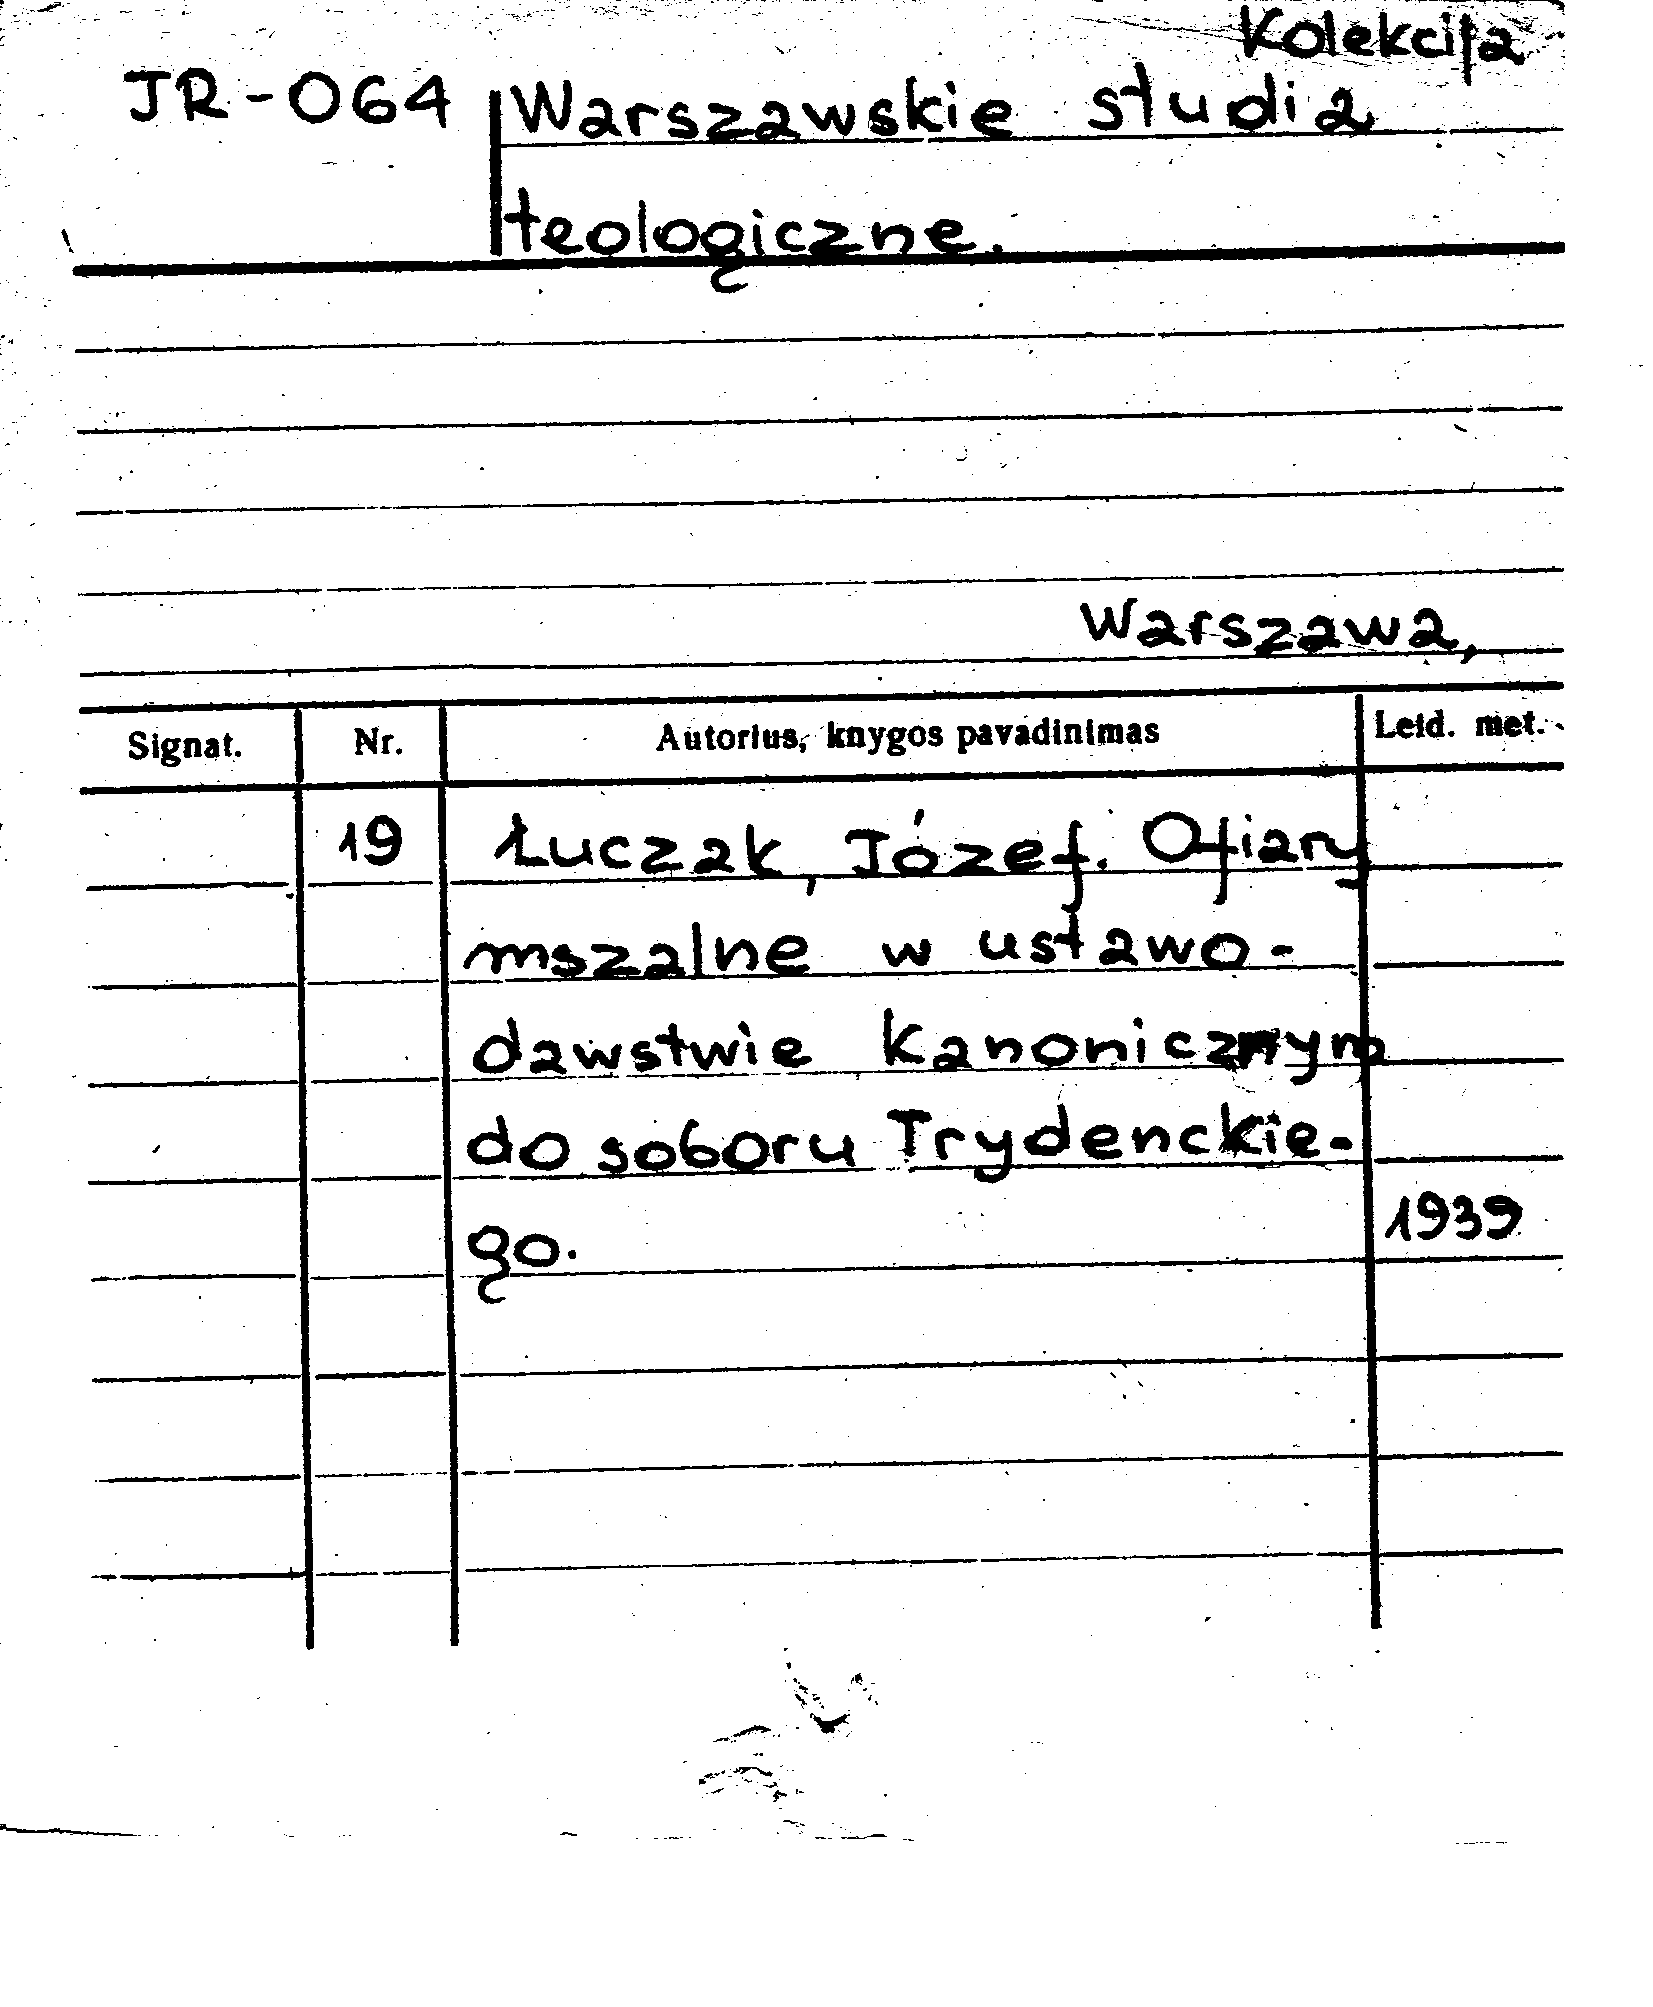 Kolekcija
JR-064 Warszawskie studia
teologiczne.
Warszawa,
Signat. Nr. Autorius, knygos pavadinimas Leid. met.
19 Łuczak, Józef. Ofiary
mszalne w ustawo-
dawstwie kanonicznym
do soboru Trydenckie-
go. 1939